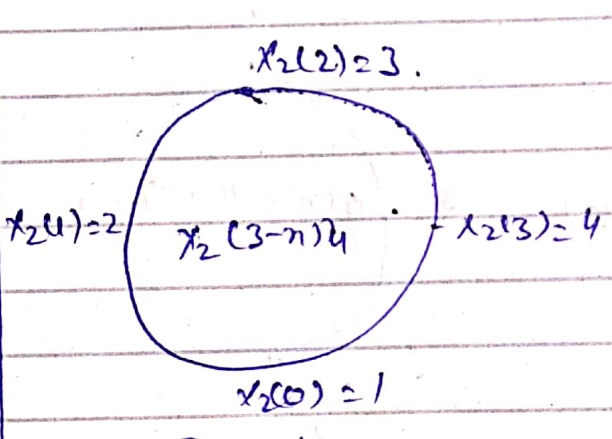 x₂(2)=3.
x₂(1)=2 x₂(3-n)₄ x₂(3)=4
x₂(0)=1